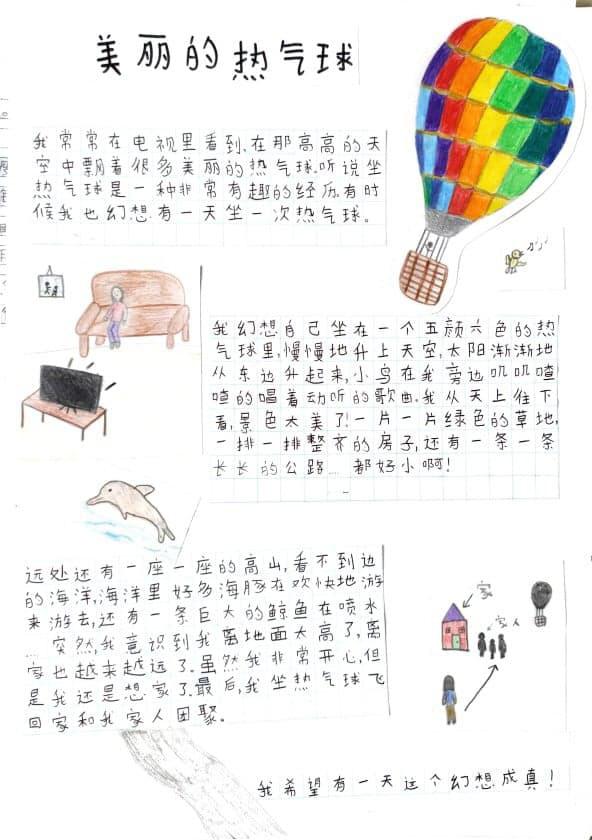 美丽的热气球
我常常在电视里看到,在那高高的天
空中飘着很多美丽的热气球.听说坐
热气球是一种非常有趣的经历.有时
候我也幻想有一天坐一次热气球。
我幻想自己坐在一个五颜六色的热
气球里,慢慢地升上天空,太阳渐渐地
从东边升起来,小鸟在我旁边叽叽喳
喳的唱着动听的歌曲.我从天上往下
看,景色太美了!一片一片绿色的草地,
一排一排整齐的房子,还有一条一条
长长的公路……都好小啊!
远处还有一座一座的高山,看不到边
的海洋,海洋里好多海豚在欢快地游
来游去,还有一条巨大的鲸鱼在喷水
……突然,我意识到我离地面太高了,离
家也越来越远了.虽然我非常开心,但
是我还是想家了.最后,我坐热气球飞
回家和我家人团聚。
家
家人
我希望有一天这个幻想成真!